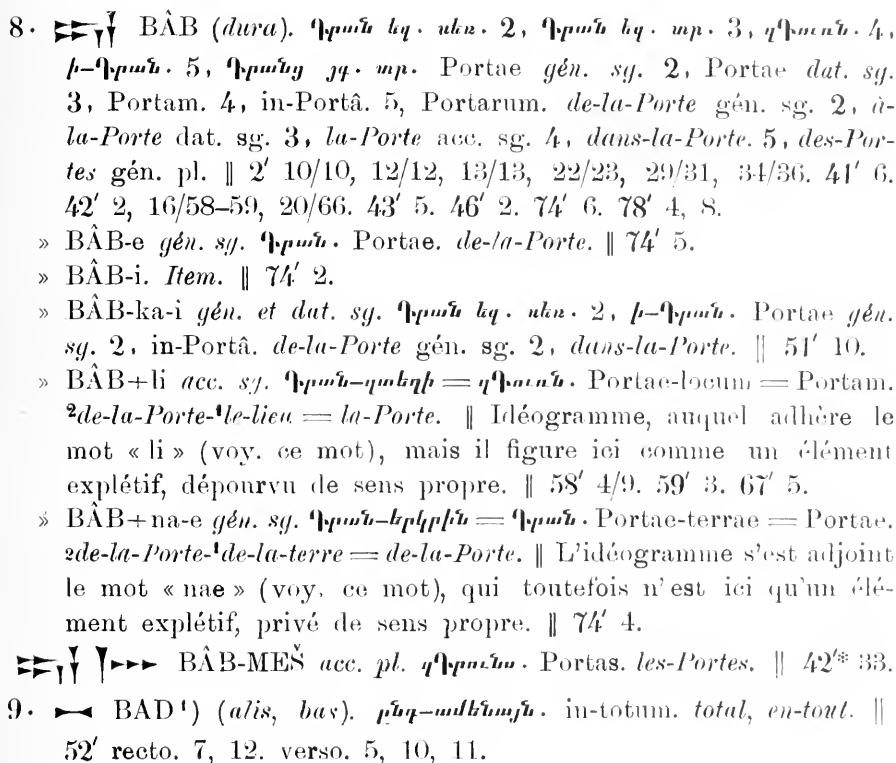 8. 𒆍 BÂB (dura). Դրան եզ. սեռ. 2, Դրան եզ. տր. 3, զԴուռն. 4,
ի-Դրան. 5, Դրանց յգ. տր. Portae gén. sg. 2, Portae dat. sg.
3, Portam. 4, in-Portâ. 5, Portarum. de-la-Porte gén. sg. 2, à-
la-Porte dat. sg. 3, la-Porte acc. sg. 4, dans-la-Porte. 5, des-Por-
tes gén. pl. ‖ 2′ 10/10, 12/12, 13/13, 22/23, 29/31, 34/36. 41′ 6.
42′ 2, 16/58–59, 20/66. 43′ 5. 46′ 2. 74′ 6. 78′ 4, 8.
» BÂB-e gén. sg. Դրան. Portae. de-la-Porte. ‖ 74′ 5.
» BÂB-i. Item. ‖ 74′ 2.
» BÂB-ka-i gén. et dat. sg. Դրան եզ. սեռ. 2, ի-Դրան. Portae gén.
sg. 2, in-Portâ. de-la-Porte gén. sg. 2, dans-la-Porte. ‖ 51′ 10.
» BÂB+li acc. sg. Դրան-զտեղի = զԴուռն. Portae-locum = Portam.
²de-la-Porte-¹le-lieu = la-Porte. ‖ Idéogramme, auquel adhère le
mot « li » (voy. ce mot), mais il figure ici comme un élément
explétif, dépourvu de sens propre. ‖ 58′ 4/9. 59′ 3. 67′ 5.
» BÂB+na-e gén. sg. Դրան-երկրին = Դրան. Portae-terrae = Portae.
²de-la-Porte-¹de-la-terre = de-la-Porte. ‖ L'idéogramme s'est adjoint
le mot « nae » (voy. ce mot), qui toutefois n'est ici qu'un élé-
ment explétif, privé de sens propre. ‖ 74′ 4.
𒆍𒈨𒌍 BÂB-MEŠ acc. pl. զԴրունս. Portas. les-Portes. ‖ 42′* 33.
9. 𒁁 BAD¹) (alis, bas). ընդ-ամենայն. in-totum. total, en-tout. ‖
52′ recto. 7, 12. verso. 5, 10, 11.